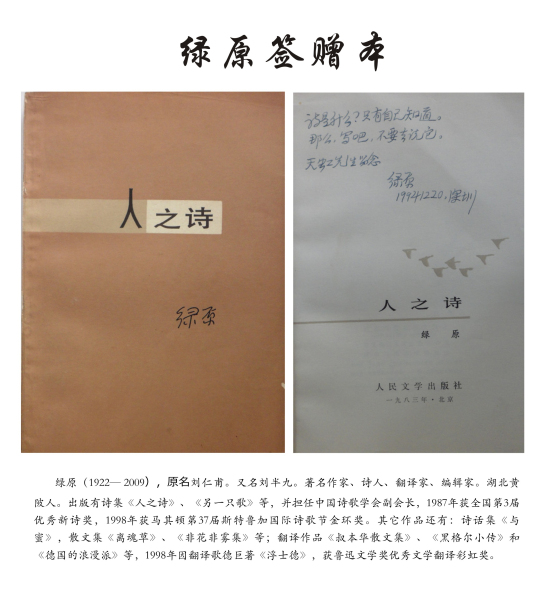 绿原签赠本
人之诗
绿原
诗是什么？只有自己知道。
那么，写吧，不要去说它。
先生留念
绿原
19941220，深圳
人之诗
绿 原
人民文学出版社
一九八三年·北京
绿原（1922—2009），原名刘仁甫。又名刘半九。著名作家、诗人、翻译家、编辑家。湖北黄
陂人。出版有诗集《人之诗》、《另一只歌》等，并担任中国诗歌学会副会长，1987年获全国第3届
优秀新诗奖，1998年获马其顿第37届斯特鲁加国际诗歌节金环奖。其它作品还有：诗话集《与
蜜》，散文集《离魂草》、《非花非雾集》等；翻译作品《叔本华散文集》、《黑格尔小传》和
《德国的浪漫派》等，1998年因翻译歌德巨著《浮士德》，获鲁迅文学奖优秀文学翻译彩虹奖。